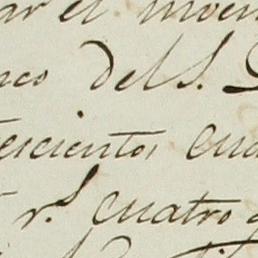 ar el inven
nco del S. D
escientos cua
r.s cuatro q